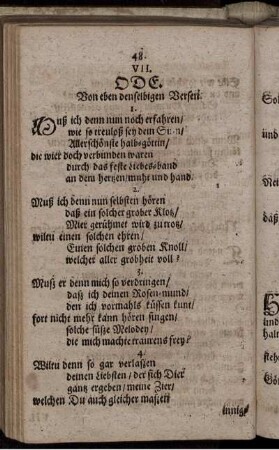 48.
VII.
ODE.
Von eben denselbigen Versen.
1.
Muß ich denn nun noch erfahren/
wie so treuloß sey dein Sinn/
Allerschönste halbgöttin/
die wier doch verbunden waren
durch das feste liebes-band
an dem hertzen/muht und hand.
2.
Muß ich denn nun selbsten hören
daß ein solcher grober Klotz/
Mier gerühmet wird zu trotz/
wiltu einen solchen ehren/
Einen solchen groben Knoll/
welcher aller grobheit voll?
3.
Muß er denn mich so verdringen/
daß ich deinen Rosen-mund/
den ich vormahls küssen kunt/
fort nicht mehr kann hören singen/
solche süsse Melodey/
die mich machte traurens frey?
4.
Wiltu denn so gar verlassen
deinen Liebsten/ der sich Dier
gantz ergeben/ meine Zier/
welchen Du auch gleicher massen
innig-